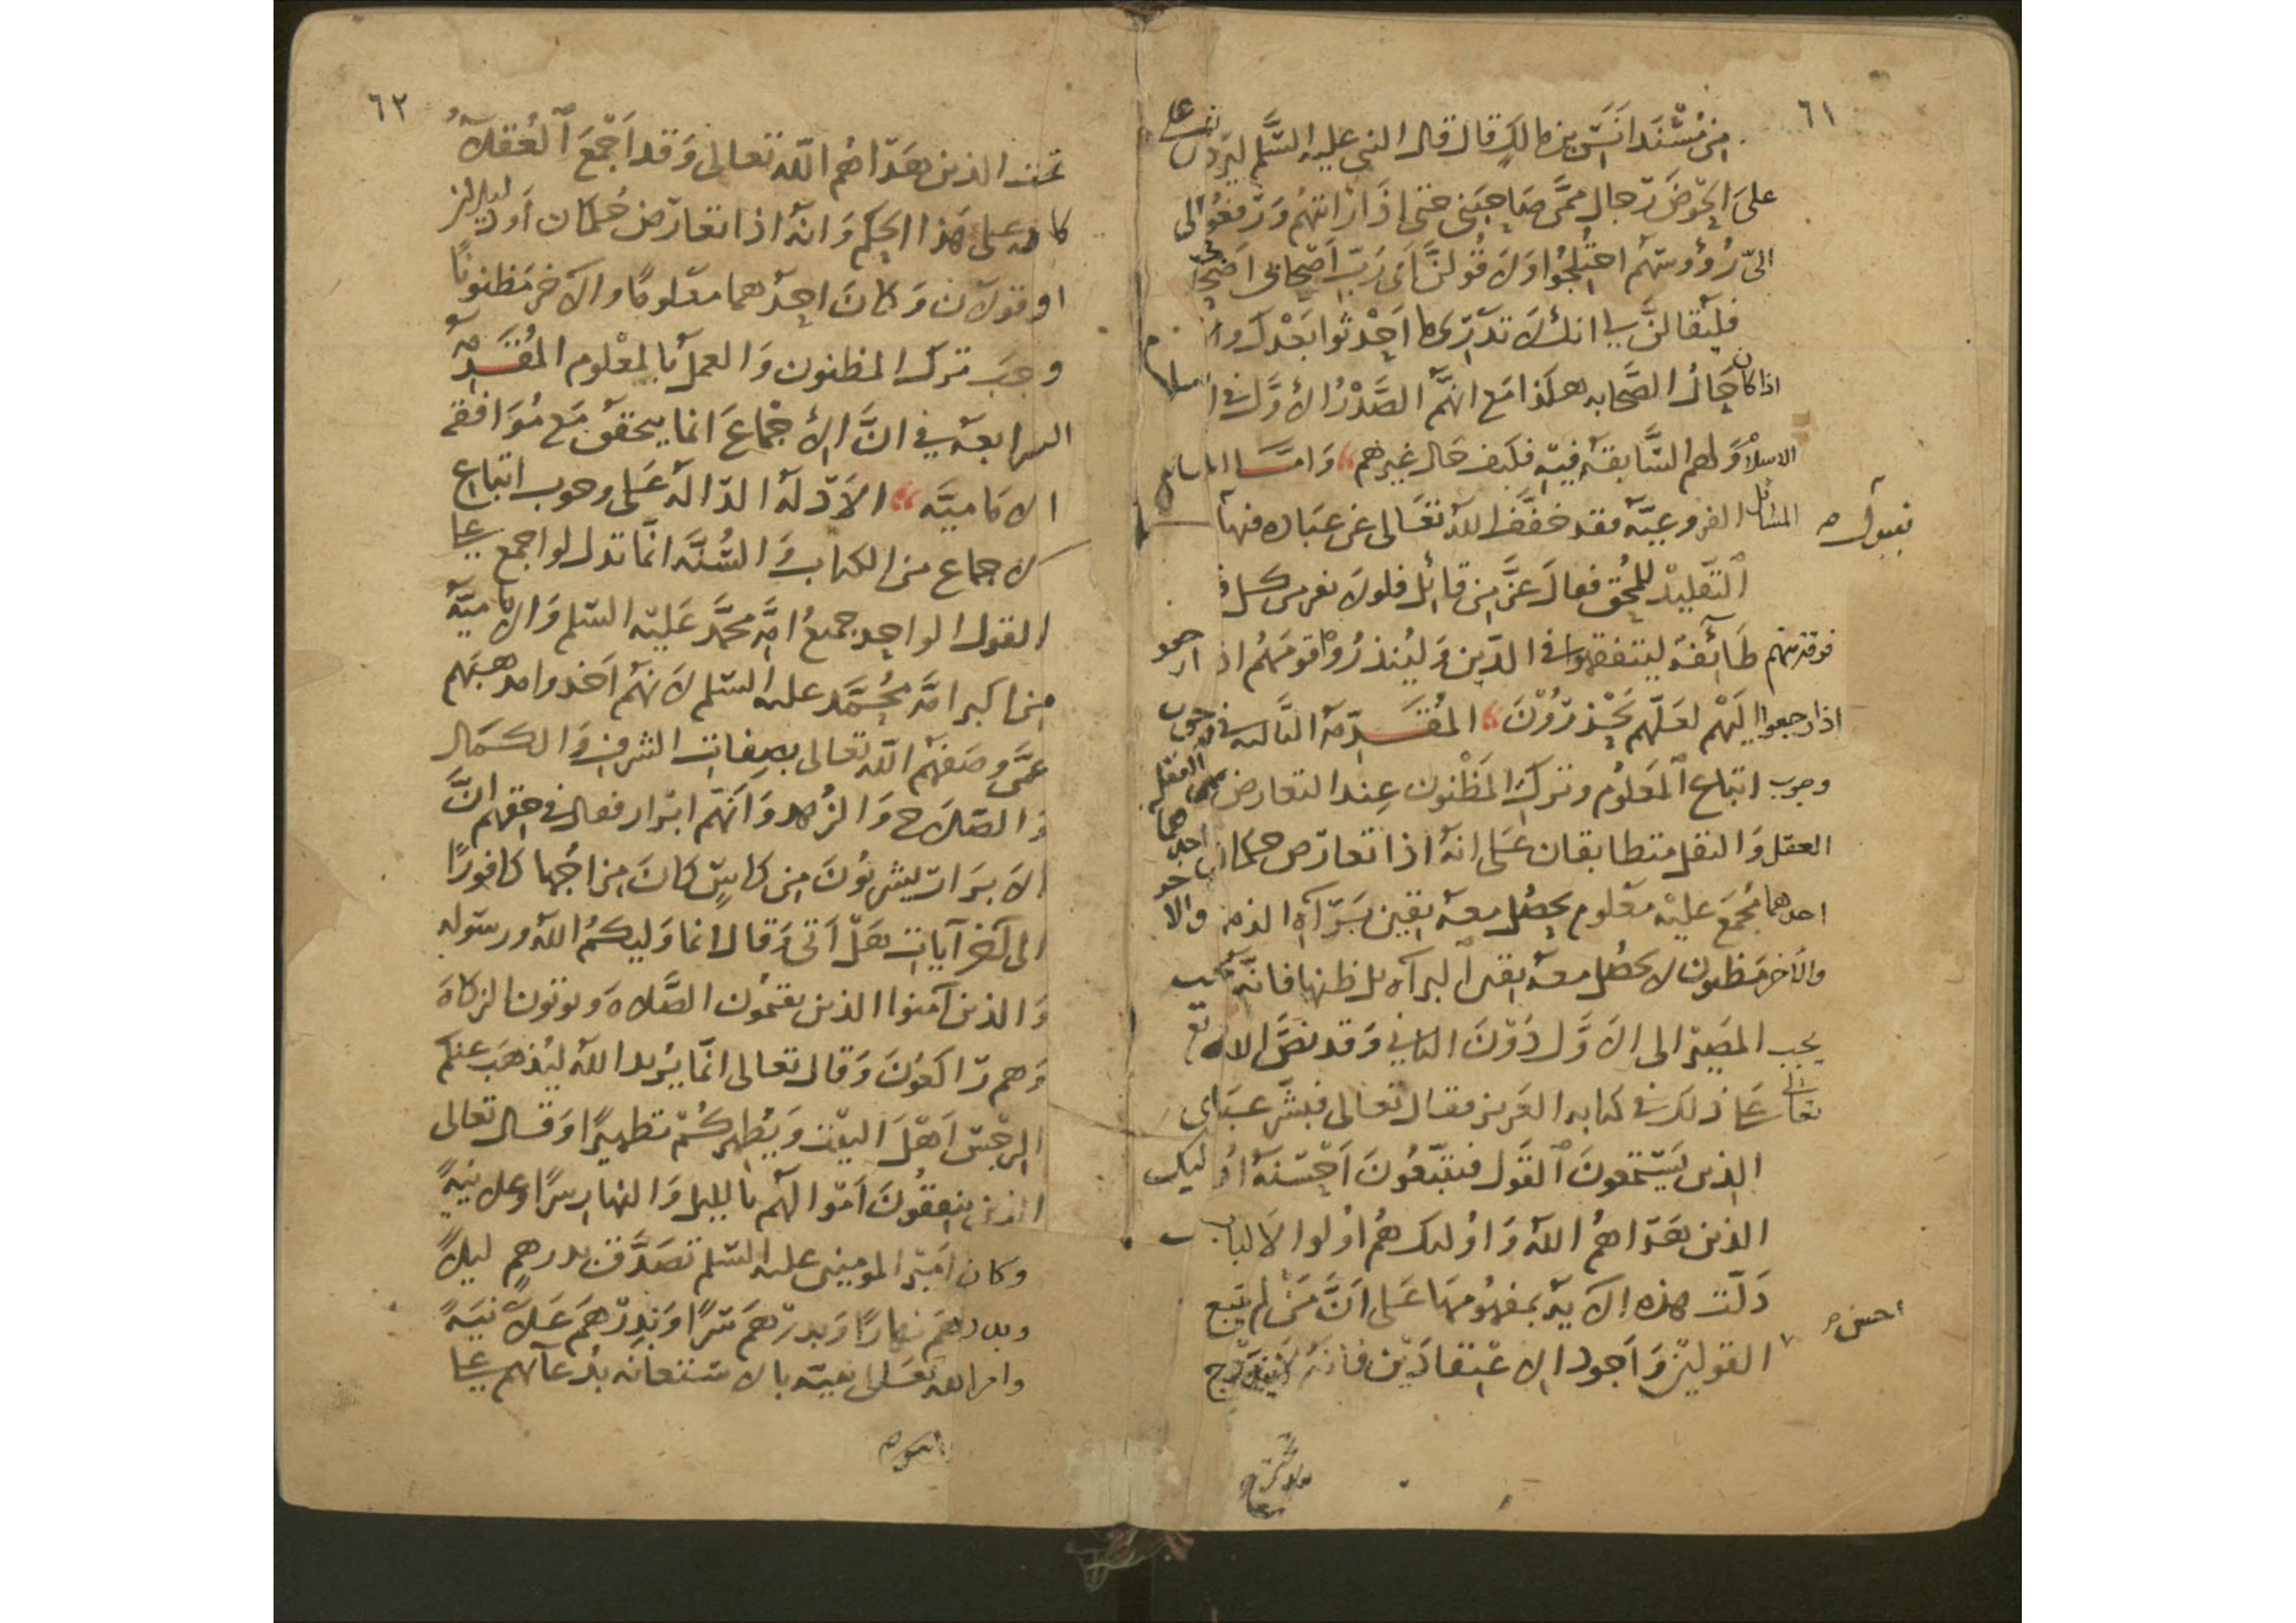 ٦١
من مسند انس بن مالك قال قال النبي عليه السلم ليردن على
على الحوض رجال ممن صاحبني حتى اذا رايتهم ورفعوا الى
الى رؤوسهم اختلجوا ولاقولن اى رب اصحابى اصحابى
فليقالن لي انك لا تدرى ما احدثوا بعدك و
اذا كان حال الصحابه هكذا مع انهم الصدر الأول في
الاسلام ولهم السابقة فيه فكيف حال غيرهم واما المسايل
المسائل الفروعيه فقد خفف الله تعالى عن عباده فيها
التقليد للمحق فقال عز من قائل فلولا نفر من كل
فرقة منهم طائفة ليتفقهوا في الدين ولينذروا قومهم اذ
اذا رجعوا اليهم لعلهم يحذرون المقدمة الثالثه في وجوب
وجوب اتباع المعلوم وترك المظنون عند التعارض
العقل والنقل متطابقان على انه اذا تعارض حكمان احدهما
احدهما مجمع عليه معلوم يحصل معه يقين براآة الذمه والا
والآخر مظنون لا يحصل معه يقين البرآه بل ظنها فانه يجب
يجب المصير الى الاول دون الثاني وقد نص الله تع
تعالى على ذلك في كتابه العزيز فقال تعالى فبشر عبادى
الذين يستمعون القول فيتبعون احسنه اوليك
الذين هداهم الله واوليك هم اولوا الالباب
دلت هذه الاية بمفهومها على ان من لم يتبع
القولين واجود الاعتقادين فانه لا يندرج
احسن صح
٦٢
تحت الذين هداهم الله تعالى وقد اجمع العقلاء
كافه على هذا الحكم وانه اذا تعارض حكمان او دليلان
او قولان وكان احدهما معلوما والاخر مظنونا
وجب ترك المظنون والعمل بالمعلوم المقدمه
الرابعه في ان الاجماع انما يتحقق مع موافقه
الاماميه الادله الداله على وجوب اتباع
الاجماع من الكتاب والسنه انما تدل لو اجمع على
القول الواحد جميع امة محمد عليه السلم والاماميه
من اكبر امة محمد عليه السلم لانهم اخذوا مذهبهم
عمن وصفهم الله تعالى بصفات الشرف والكمال
والصلاح والزهد وانهم ابرار فقال في حقهم ان
الابرار يشربون من كاس كان مزاجها كافورا
الى آخر آيات هل اتى وقال انما وليكم الله ورسوله
والذين آمنوا الذين يقيمون الصلاه ويوتون الزكاة
وهم راكعون وقال تعالى انما يريد الله ليذهب عنكم
الرجس اهل البيت ويطهركم تطهيرا وقال تعالى
الذين ينفقون اموالهم بالليل والنهار سرا وعلانية
وكان امير المومنين عليه السلم تصدق بدرهم ليلا
وبدرهم نهارا وبدرهم سرا وبدرهم علانية
وامر الله تعالى نبيه بالاستعانه بدعآئهم على